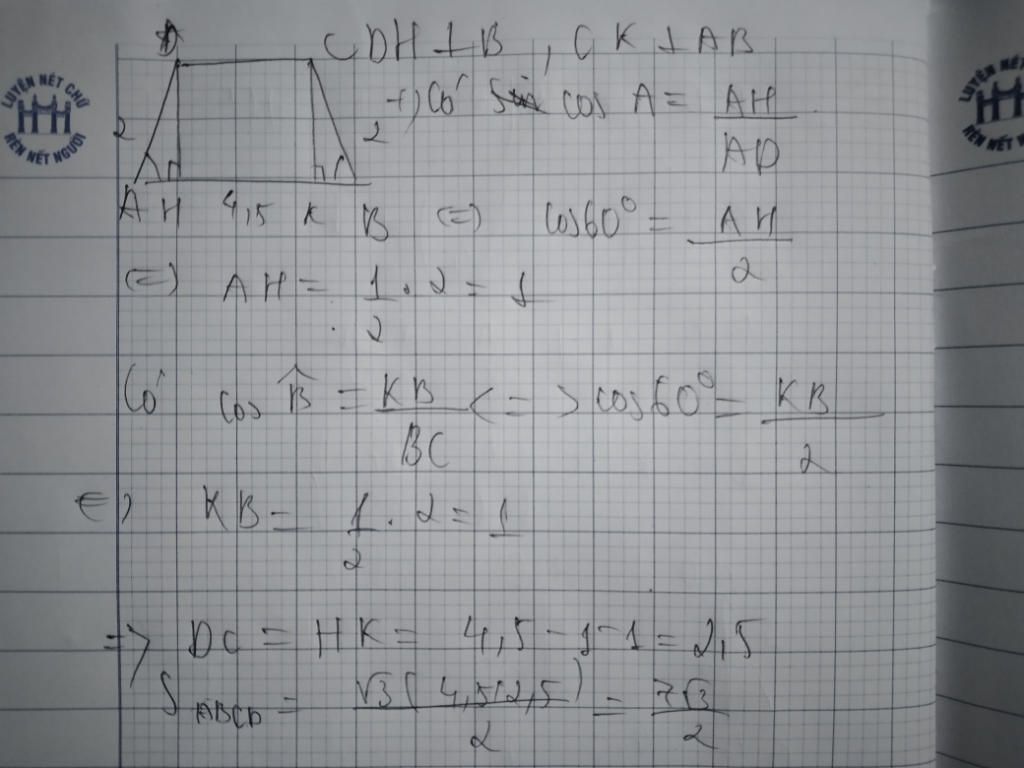 LUYỆN NÉT CHỮ
RÈN NẾT NGƯỜI
D C DH ⊥ B , CK ⊥ AB
2 2
A H 4,5 K B
+) Có cos A = AH / AD
(=) cos60° = AH / 2
(=) AH = 1/2 . 2 = 1
Có cos B̂ = KB / BC <=> cos60° = KB / 2
(=) KB = 1/2 . 2 = 1
=> DC = HK = 4,5 - 1 - 1 = 2,5
S ABCD = √3 ( 4,5 + 2,5 ) / 2 = 7√3 / 2
LUYỆN NÉT
RÈN NẾT